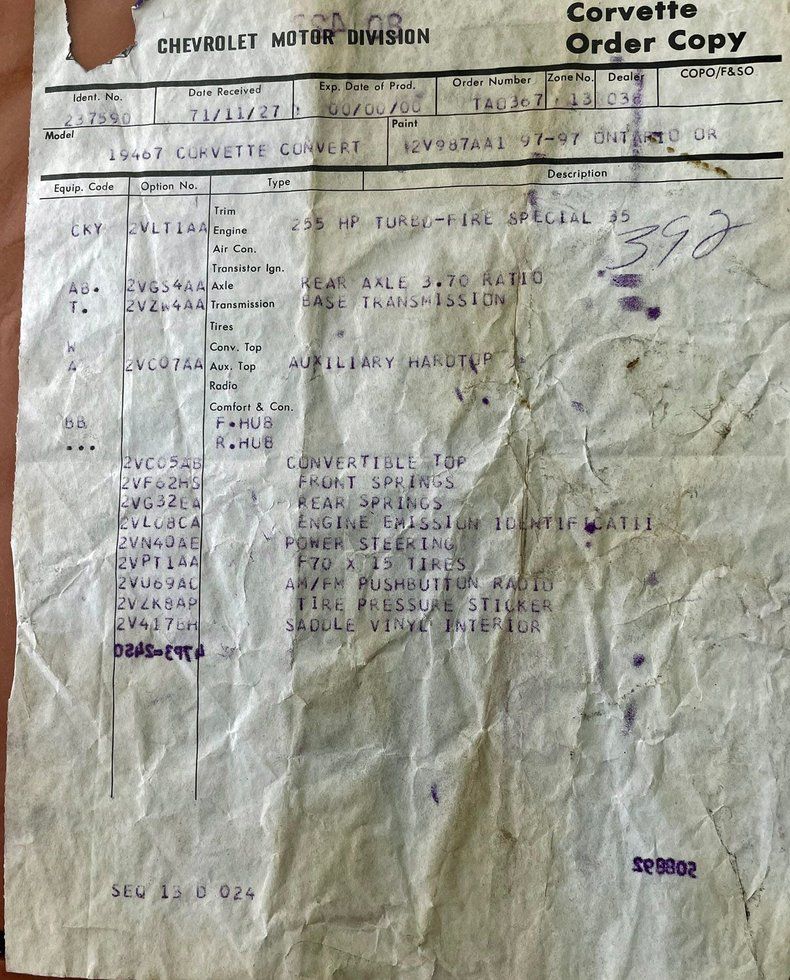 Corvette
Order Copy
CHEVROLET MOTOR DIVISION
Ident. No. Date Received Exp. Date of Prod. Order Number Zone No. Dealer COPO/F&SO
237590 71/11/27 00/00/00 TA0367 13 036
Model Paint
19467 CORVETTE CONVERT 2V987AA1 97-97 ONTARIO OR
Equip. Code Option No. Type Description
Trim
CKY 2VLT1AA Engine 255 HP TURBO-FIRE SPECIAL 35
392
Air Con.
Transistor Ign.
AB. 2VGS4AA Axle REAR AXLE 3.70 RATIO
T. 2VZW4AA Transmission BASE TRANSMISSION
Tires
W Conv. Top
A 2VC07AA Aux. Top AUXILIARY HARDTOP
Radio
Comfort & Con.
BB F.HUB
... R.HUB
2VC05AB CONVERTIBLE TOP
2VF62HS FRONT SPRINGS
2VG32EA REAR SPRINGS
2VL08CA ENGINE EMISSION IDENTIFICATII
2VN40AE POWER STEERING
2VPT1AA F70 X 15 TIRES
2VU69AC AM/FM PUSHBUTTON RADIO
2VZK8AP TIRE PRESSURE STICKER
2V417BH SADDLE VINYL INTERIOR
47P3=2450
508892
SEQ 13 D 024